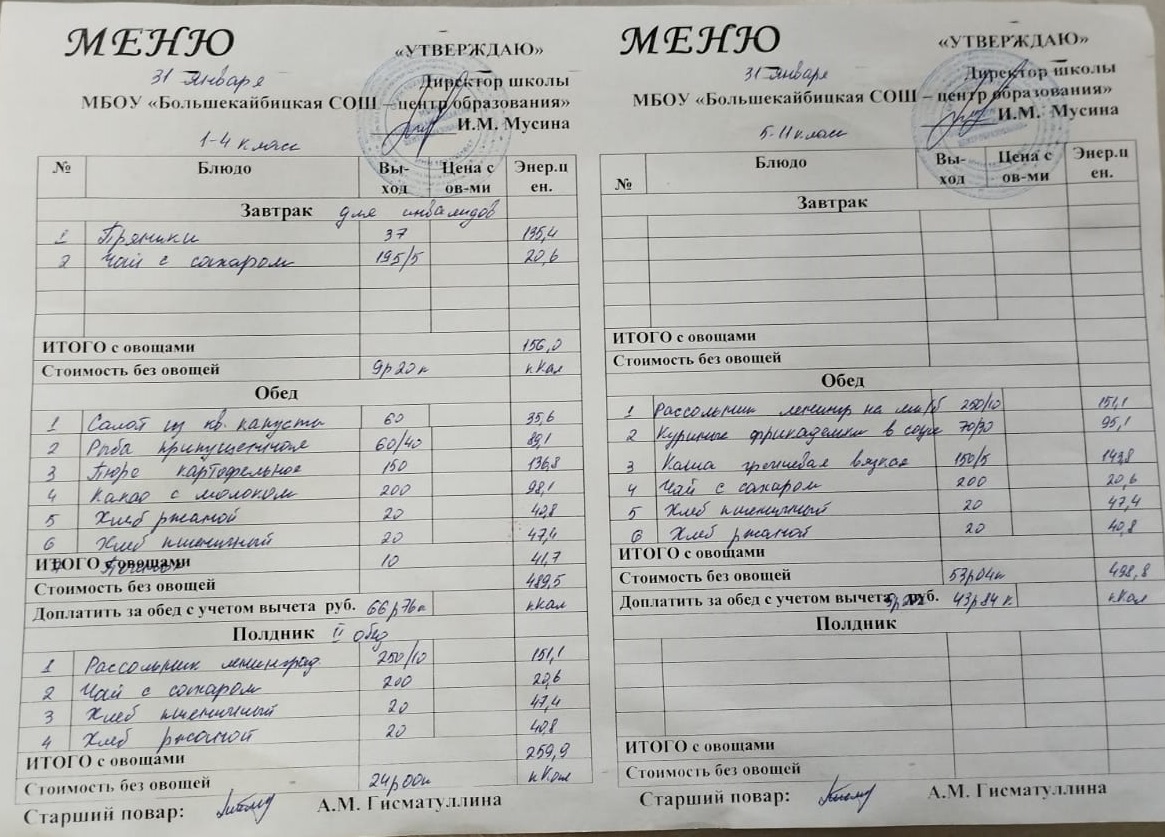 МЕНЮ
«УТВЕРЖДАЮ»
31 января
Директор школы
МБОУ «Большекайбицкая СОШ – центр образования»
И.М. Мусина
1-4 класс
№ Блюдо Вы-ход Цена с ов-ми Энер.цен.
Завтрак для инвалидов
1 Пряники 37 135,4
2 Чай с сахаром 195/5 20,6
ИТОГО с овощами 156,0
Стоимость без овощей 9р20к кКал
Обед
1 Салат из кв. капусты 60 35,6
2 Рыба припущенная 60/40 89,1
3 Пюре картофельное 150 136,8
4 Какао с молоком 200 98,1
5 Хлеб ржаной 20 40,8
6 Хлеб пшеничный 20 47,4
ИТОГО с овощами 10 41,7
Стоимость без овощей 489,5
Доплатить за обед с учетом вычета руб. 66р76к кКал
Полдник II обед
1 Рассольник ленинград 250/10 151,1
2 Чай с сахаром 200 20,6
3 Хлеб пшеничный 20 47,4
4 Хлеб ржаной 20 40,8
ИТОГО с овощами 259,9
Стоимость без овощей 24р00к кКал
Старший повар: А.М. Гисматуллина
МЕНЮ
«УТВЕРЖДАЮ»
31 января
Директор школы
МБОУ «Большекайбицкая СОШ – центр образования»
И.М. Мусина
5-11 класс
№ Блюдо Вы-ход Цена с ов-ми Энер.цен.
Завтрак
ИТОГО с овощами
Стоимость без овощей
Обед
1 Рассольник ленингр на мк/б 250/10 151,1
2 Куриные фрикадельки в соусе 70/30 95,1
3 Каша гречневая вязкая 150/5 143,8
4 Чай с сахаром 200 20,6
5 Хлеб пшеничный 20 47,4
6 Хлеб ржаной 20 40,8
ИТОГО с овощами
Стоимость без овощей 53р04к 498,8
Доплатить за обед с учетом вычета руб. 43р84к кКал
Полдник
ИТОГО с овощами
Стоимость без овощей
Старший повар: А.М. Гисматуллина